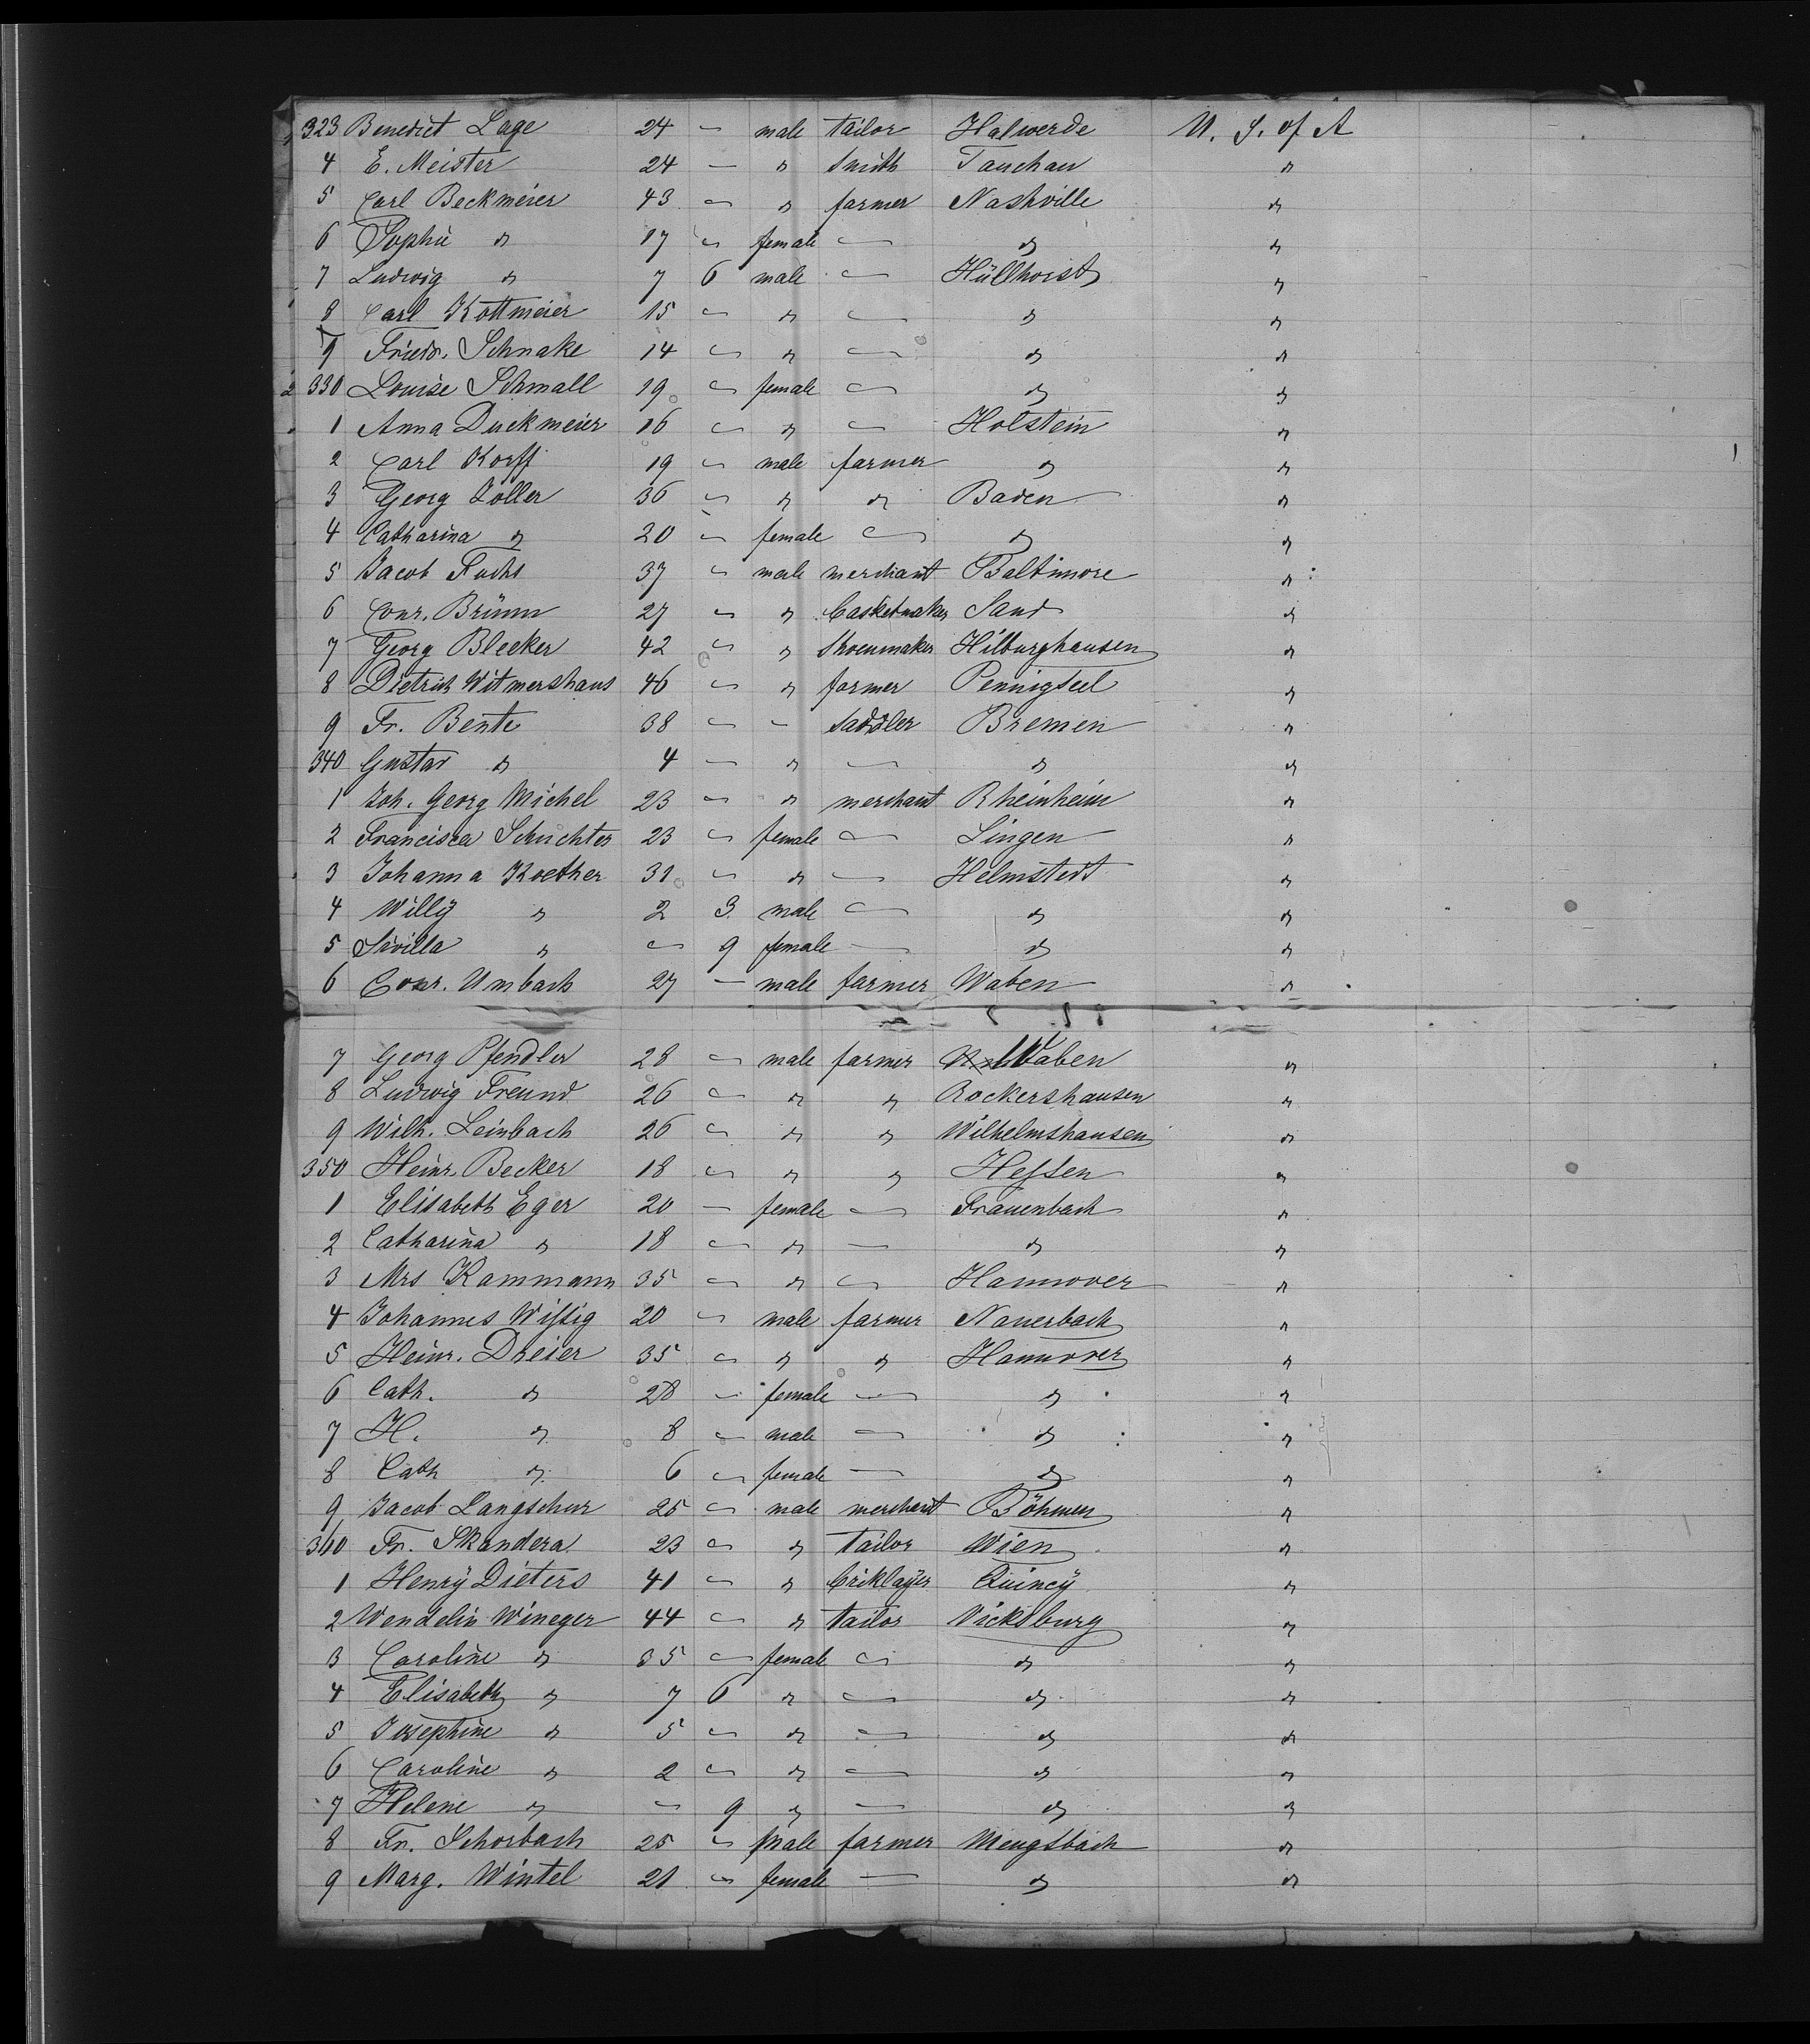 323 Benedict Lage 24 — male tailor Halwerde U. S. of A
4 E. Meister 24 — " Smith Tauchau "
5 Carl Beckmeier 43 — " farmer Nashville "
6 Sophie " 17 — female — " "
7 Ludwig " 7 6 male — Hüllhorst "
8 Carl Kottmeier 15 — " — " "
9 Friedr. Schnake 14 — " — " "
330 Louise Schmall 19 — female — " "
1 Anna Duckmeier 16 — " — Holstein "
2 Carl Korff 19 — male farmer " "
3 Georg Zoller 36 — " " Baden "
4 Catharina " 20 — female — " "
5 Jacob Fuchs 37 — male merchant Baltimore "
6 Conr. Brünn 27 — " Casketmaker Sand "
7 Georg Blecker 42 — " Shoenmaker Hilburghausen "
8 Dietrich Witmershaus 46 — " farmer Pennigseel "
9 Fr. Bente 38 — - saddler Bremen "
340 Gustav " 4 — " — " "
1 Joh. Georg Michel 23 — " merchant Rheinheim "
2 Francisca Schuchter 23 — female — Lingen "
3 Johanna Koether 31 — " — Helmstedt "
4 Willy " 2 3 male — " "
5 Sivilla " — 9 female — " "
6 Conr. Umbach 27 — male farmer Waben "
7 Georg Pfendler 28 — male farmer Waben "
8 Ludwig Freund 26 — " " Rockershausen "
9 Wilh. Leinbach 26 — " " Wilhelmshausen "
350 Heinr. Becker 18 — " " Hessen "
1 Elisabeth Eger 20 — female — Frauenbach "
2 Catharina " 18 — " — " "
3 Mrs Kammann 35 — " — Hannover "
4 Johannes Wissig 20 — male farmer Nauerbach "
5 Heinr. Dreier 35 — " " Hannover "
6 Cath. " 28 — female — " "
7 H. " 8 — male — " "
8 Cath " 6 — female — " "
9 Jacob Langschur 25 — male merchant Böhmen "
360 Fr. Skandera 23 — " tailor Wien "
1 Henry Dieters 41 — " briklayer Quincy "
2 Wendelin Wineger 44 — " tailor Vicksburg "
3 Caroline " 35 — female — " "
4 Elisabeth " 7 6 " — " "
5 Josephine " 5 — " — " "
6 Caroline " 2 — " — " "
7 Helene " — 9 " — " "
8 Fr. Schorbach 25 — male farmer Mengsbach "
9 Marg. Wintel 21 — female — " "